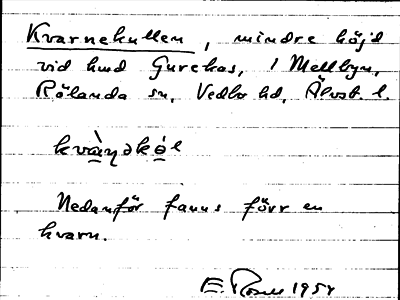 Kvarnekullen, mindre höjd
vid hmd Gurekas, i Mellbyn,
Rölanda sn, Vedbo hd, Älvsb. l.
kvàṇəkól
Nedanför fanns förr en
kvarn.
E. 195